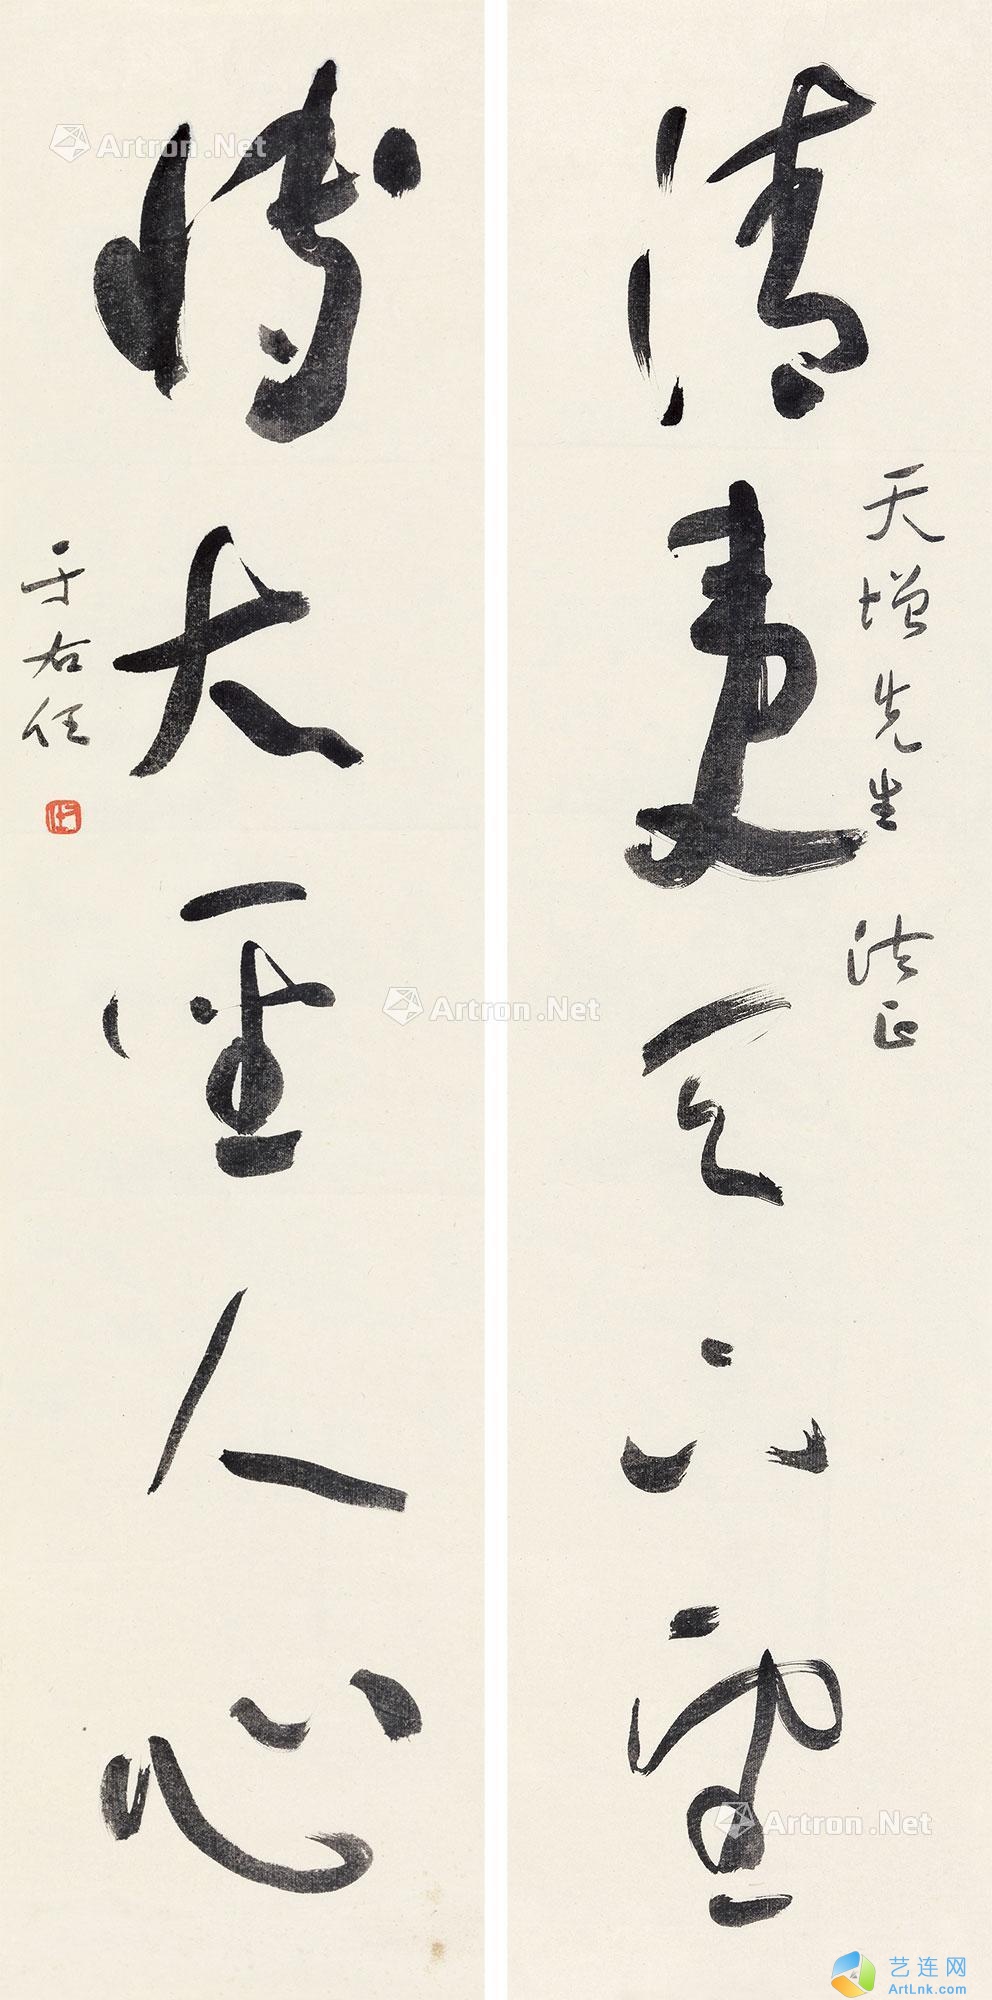 清夷天下望
天增先生 法正
博大聖人心
于右任
Artron.Net
Artron.Net
Artron.Net
艺连网
ArtLnk.com